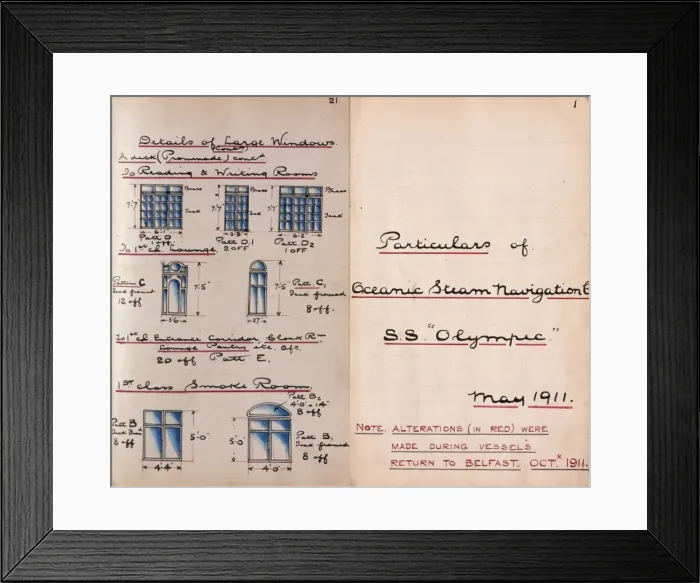 21
Details of Large Windows.
(cont^d)
A deck (Promenade) cont^d
To Reading & Writing Rooms
Brass
Teak
7'·7"
6'·1"
Patt D
1 off.
Brass
Teak
7'·7"
Patt D.1
2 OFF
Brass
Teak
7'·7"
6'·2"
Patt D2
1 OFF
To 1st cl. Lounge.
Pattern C
Teak framed
12 off
7'·5"
3'·6"
7'·5"
Patt. C,
Teak framed
8 off.
To 1st cl. Entrance Corridor, Cloak Rm
Lounge Pantry etc.
20 off Patt E.
1ST class Smoke Room.
Patt B
8 off
5'·0"
4'·4"
Patt B2
4'·0" × 1'4"
8 off
5'·0"
4'·0"
Patt B,
Teak framed
8 off
1
Particulars of
Oceanic Steam Navigation C
S.S. "Olympic"
May 1911.
NOTE. ALTERATIONS (IN RED) WERE
MADE DURING VESSEL'S
RETURN TO BELFAST. OCT.R 1911.